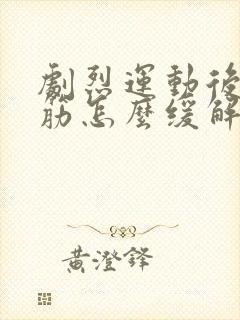 劇烈運動後
筋怎麼緩解
黃澄鋒